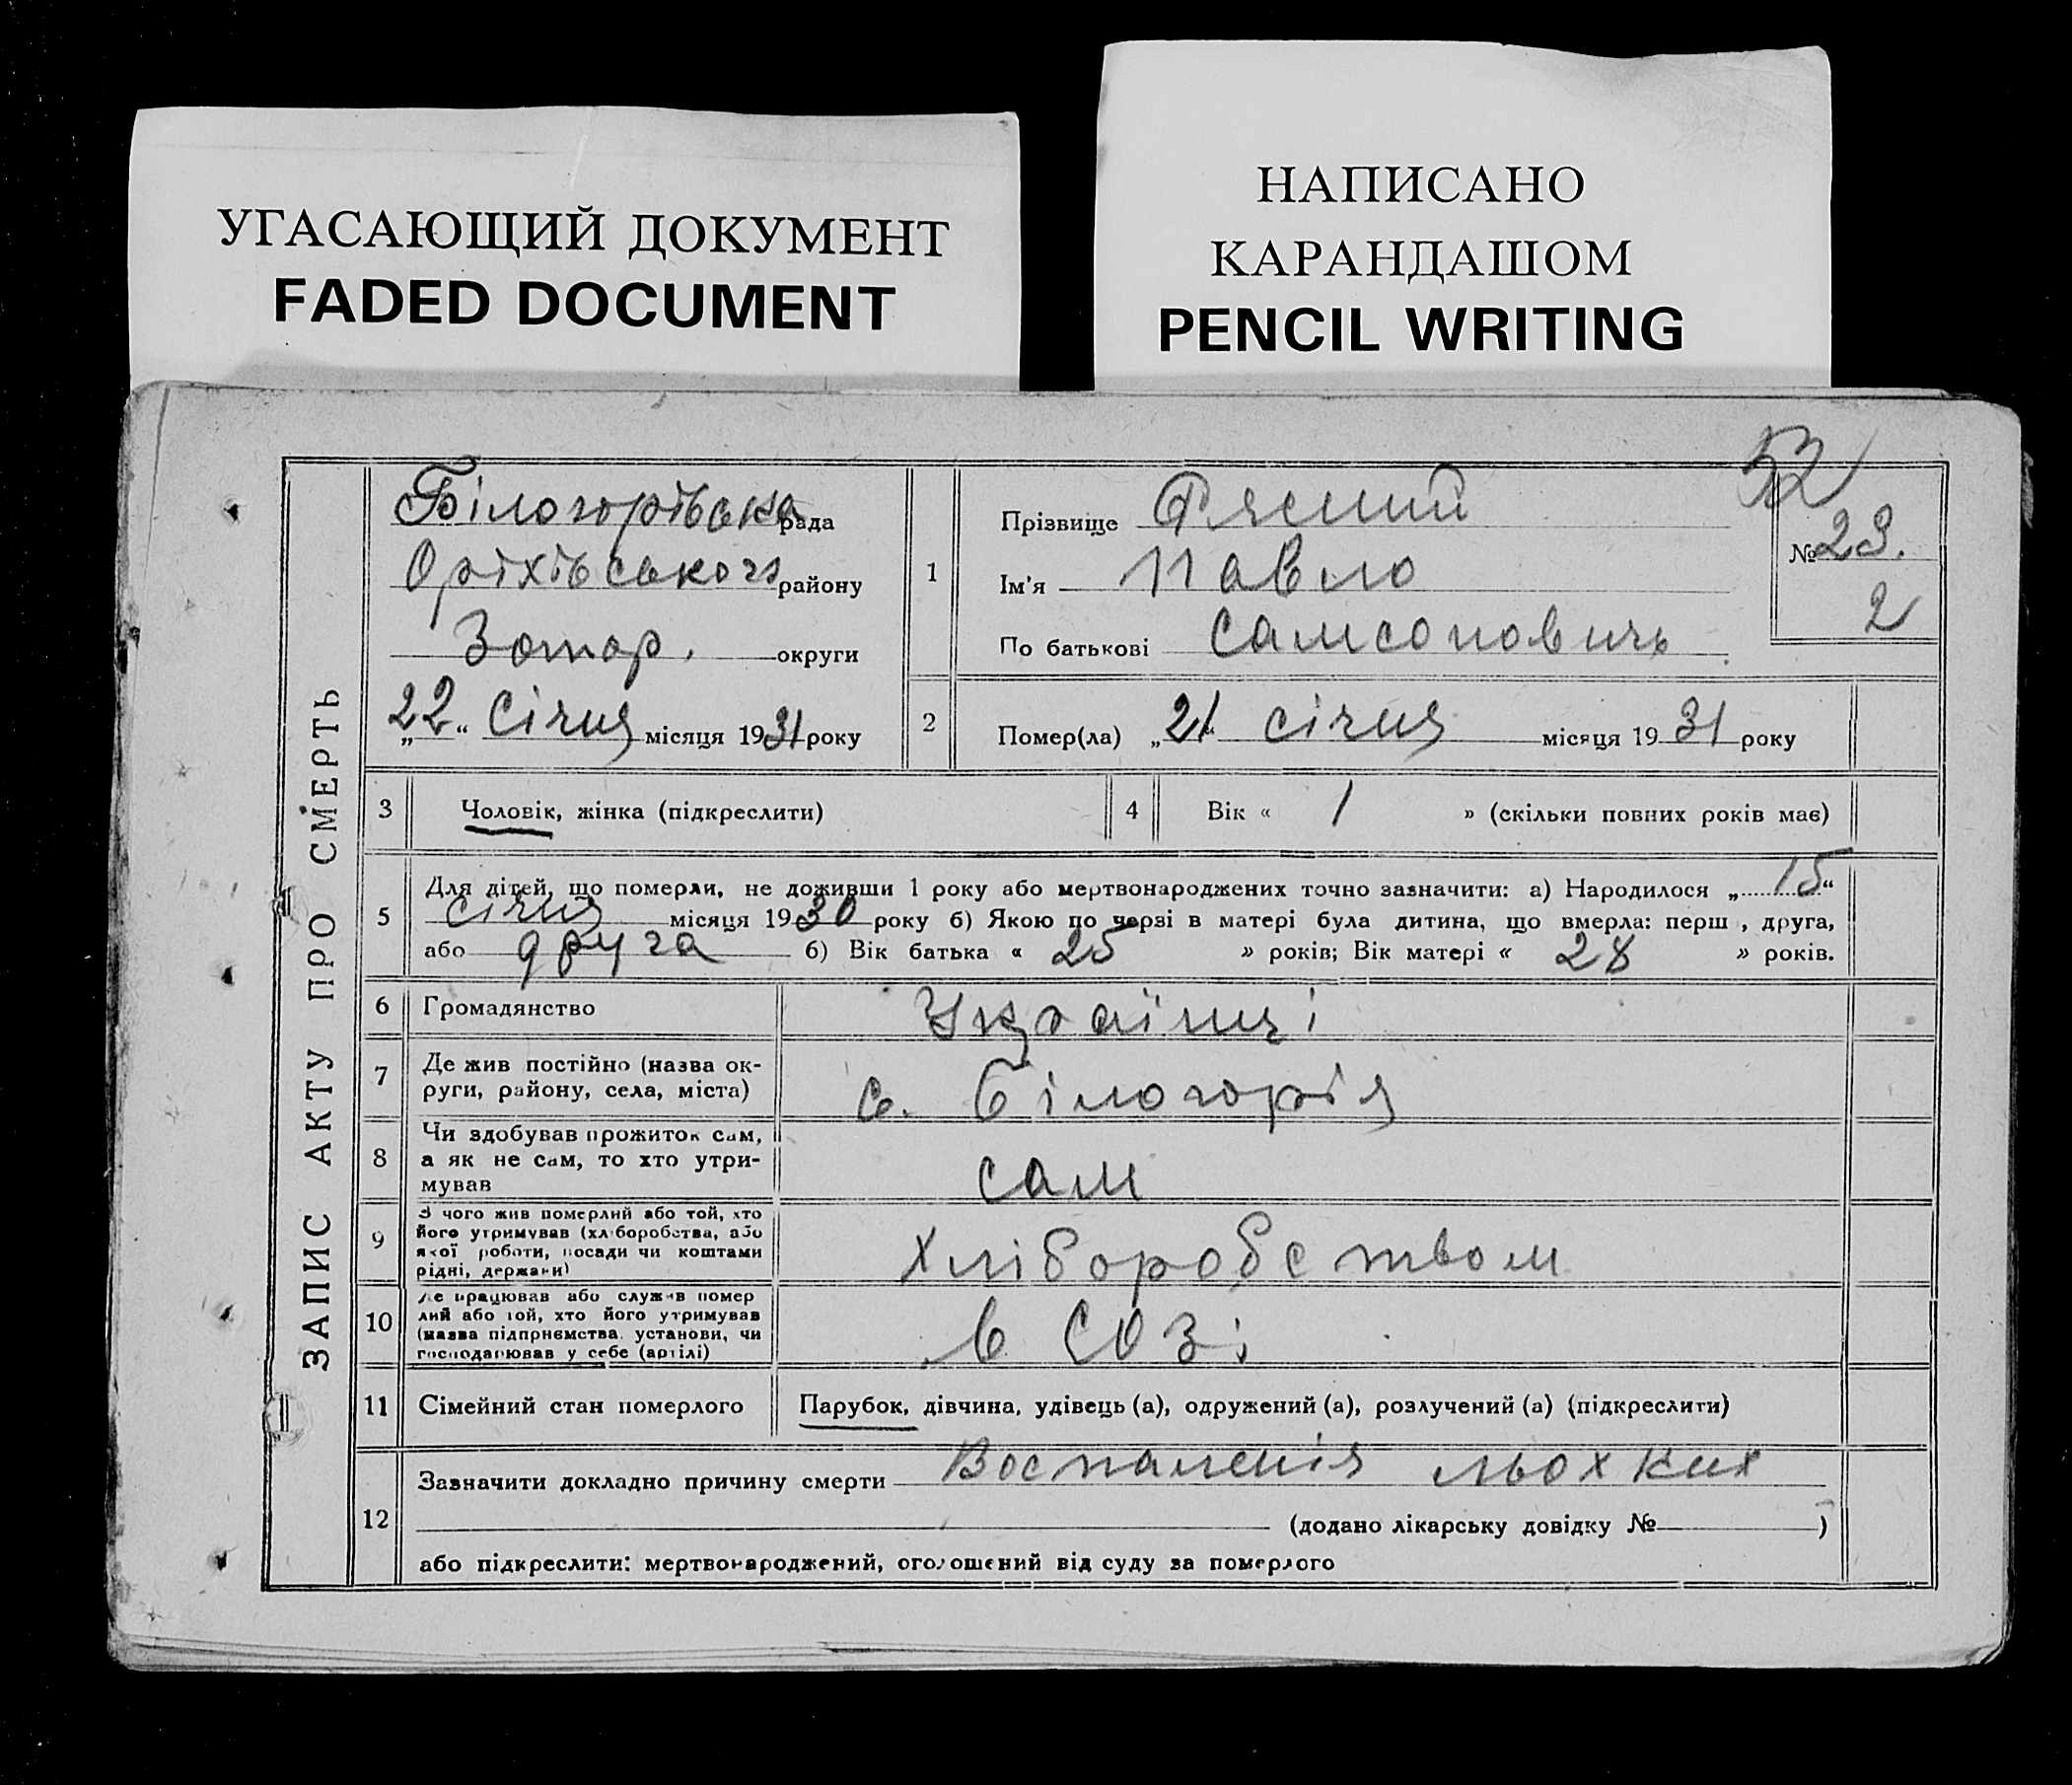 УГАСАЮЩИЙ ДОКУМЕНТ
FADED DOCUMENT
НАПИСАНО
КАРАНДАШОМ
PENCIL WRITING
52
ЗАПИС АКТУ ПРО СМЕРТЬ
Білогорівська рада
Оріхівського району
округи
„22“ Січня місяця 1931 року
1
Прізвище Рясний
Ім'я Павло
По батькові Самсоновичь
№ 23.
2
2
Помер(ла) „21 січня місяця 1931 року
3 Чоловік, жінка (підкреслити)
4 Вік « 1 » (скільки повних років має)
5 Для дітей, що померли, не доживши 1 року або мертвонароджених точно зазначити: а) Народилося „15“
січня місяця 1930 року б) Якою по черзі в матері була дитина, що вмерла: перш , друга,
або друга б) Вік батька « 25 » років; Вік матері « 28 » років.
6 Громадянство Українці
7 Де жив постійно (назва ок-
руги, району, села, міста) с. Білогорія
8 Чи здобував прожиток сам,
а як не сам, то хто утри-
мував сам
9 З чого жив померлий або той, хто
його утримував (хліборобства, або
якої роботи, посади чи коштами
рідні, держави) хліборобством
10 Де працював або служив помер
лий або той, хто його утримував
(назва підприємства, установи, чи
господарював у себе (артілі) в СОЗі
11 Сімейний стан померлого Парубок, дівчина, удівець (а), одружений (а), розлучений (а) (підкреслити)
12 Зазначити докладно причину смерти Воспаленія льохких
(додано лікарську довідку № )
або підкреслити: мертвонароджений, оголошений від суду за померлого